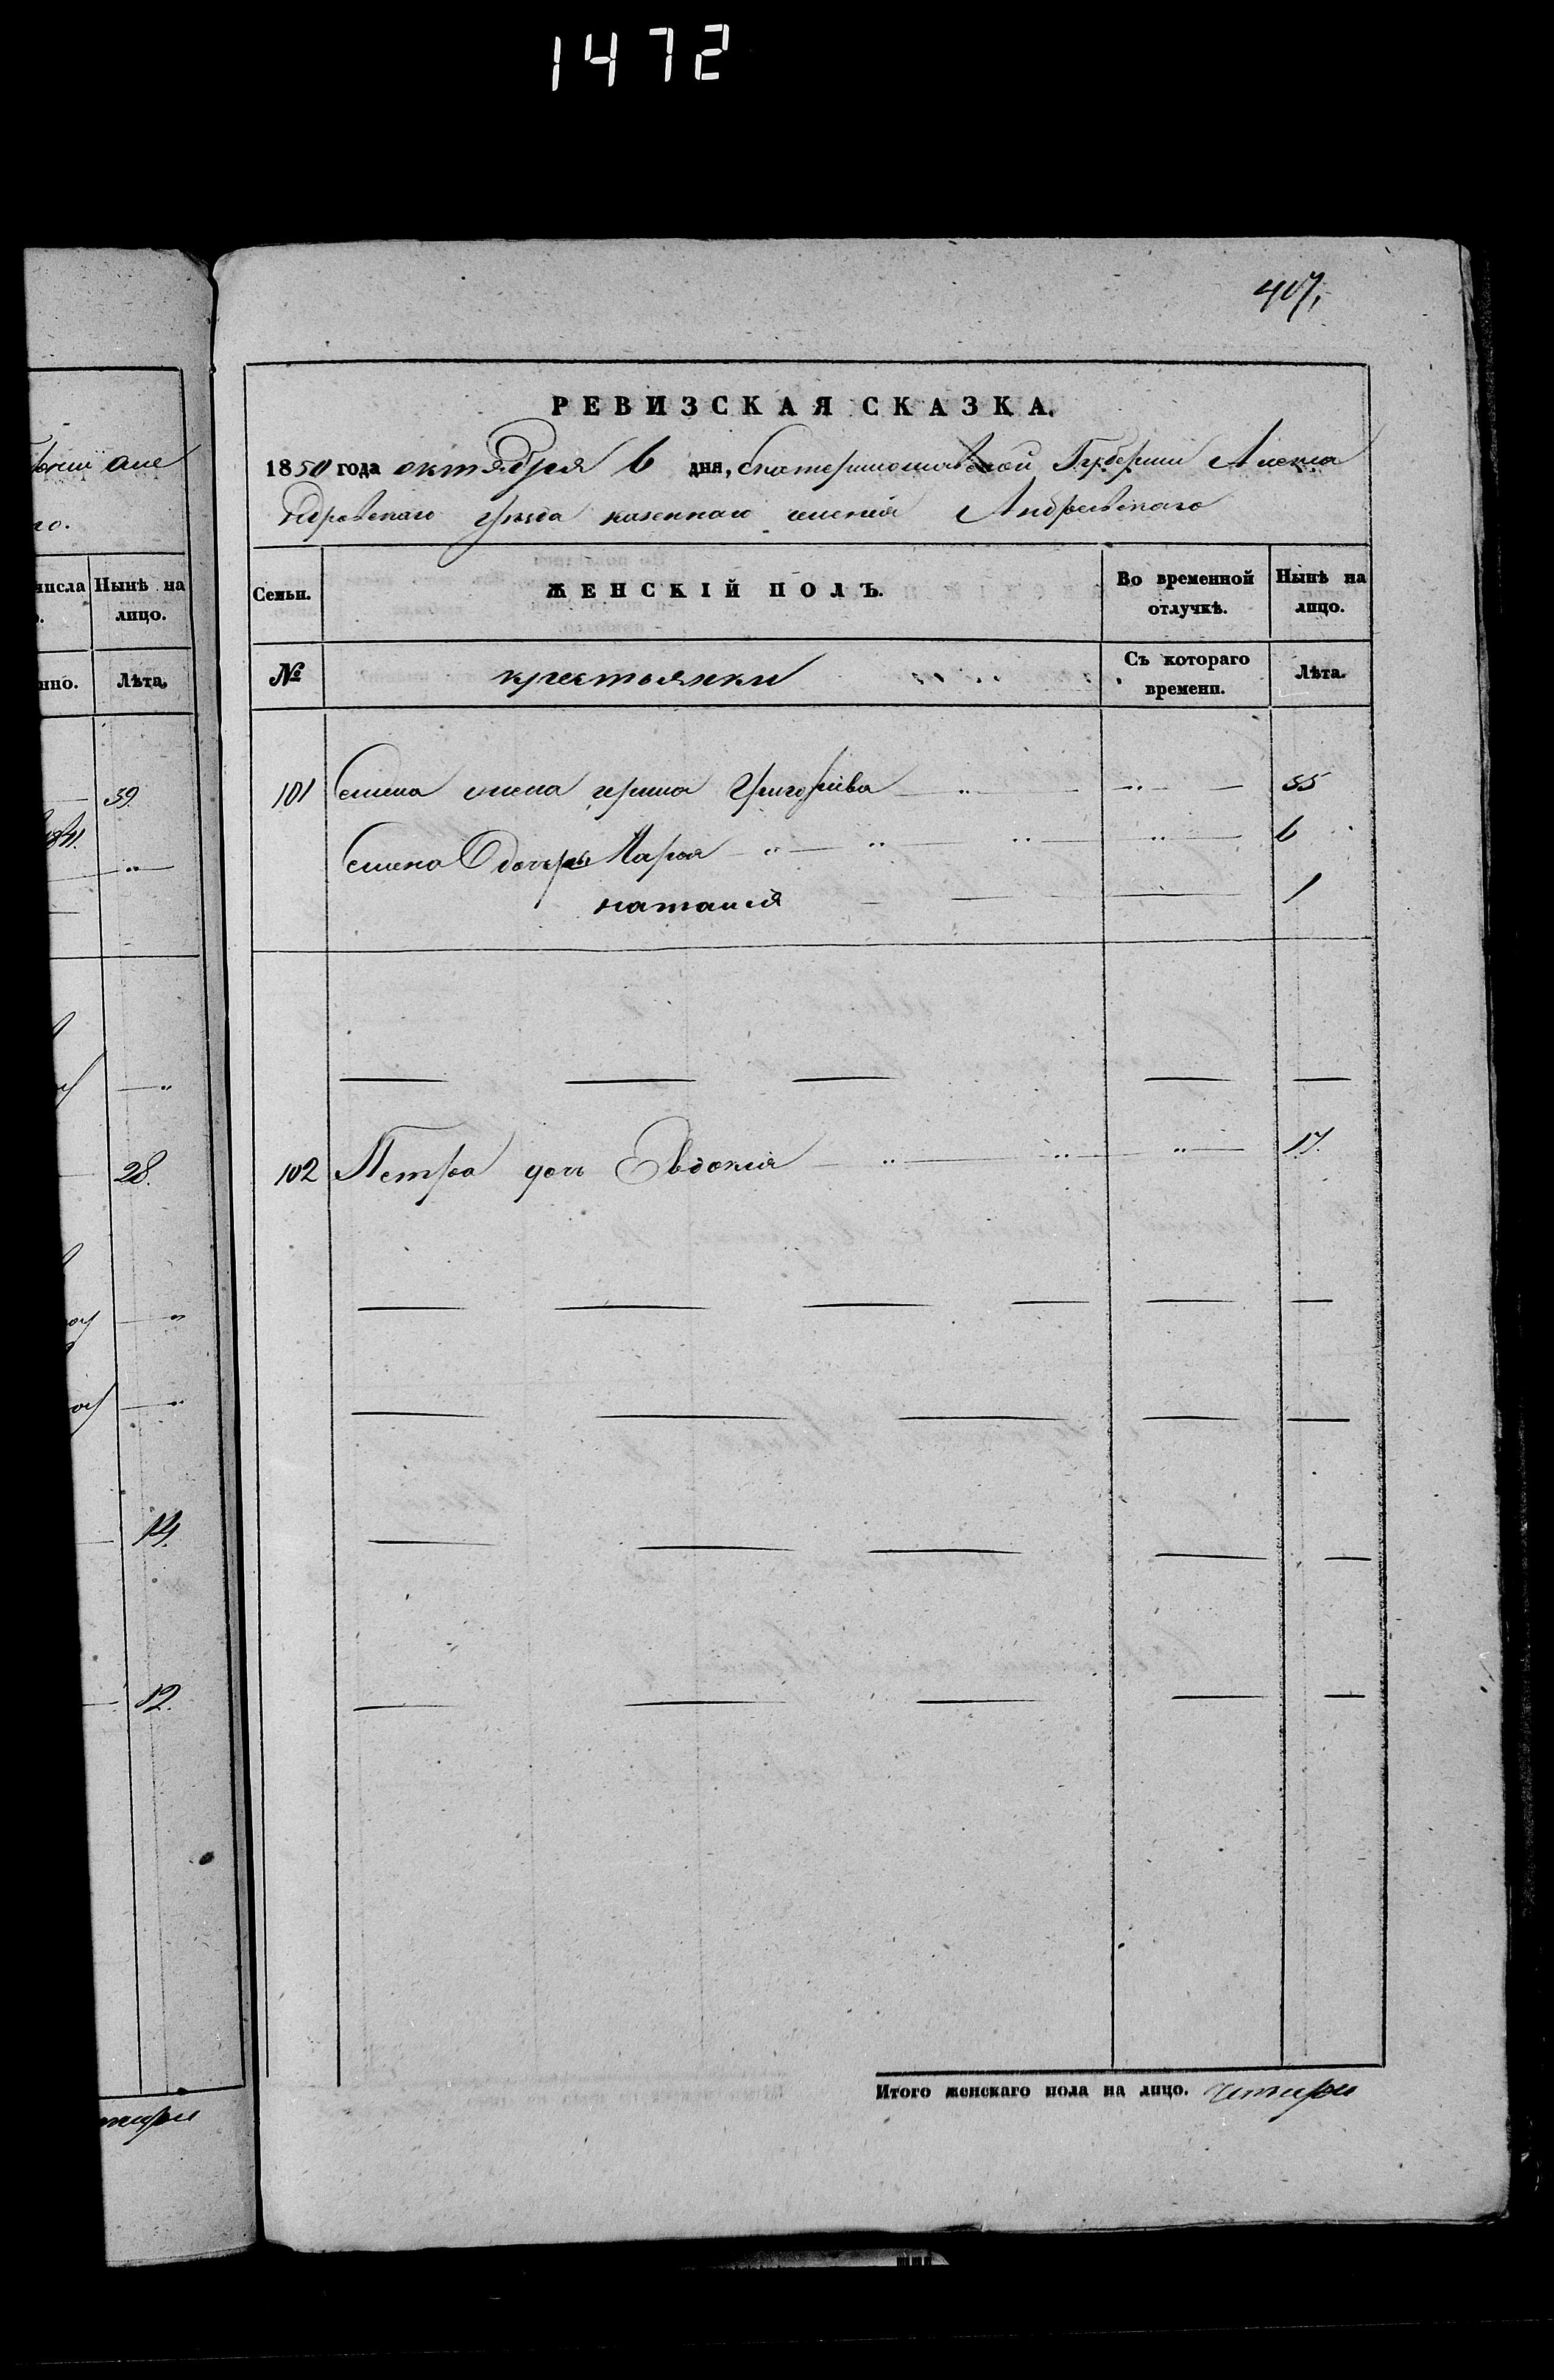 1472
407,
РЕВИЗСКАЯ СКАЗКА.
1850 года октября 6 дня, Екатеринославской Губернии Алекса
ндровскаго уезда казеннаго имения Андреевскаго
Семьи.
ЖЕНСКІЙ ПОЛЪ.
Во временной отлучкѣ.
Нынѣ на лицо.
№
крестьянки
Съ котораго времени.
Лѣта.
101 Семена жена ирина Григориева 55
Семена дочерь Марья 6
наталия 1
102 Петра доч Евдокия 17.
Итого женскаго пола на лицо. четыри
числа
Нынѣ на лицо.
нно.
Лѣта.
39.
28.
14.
12.